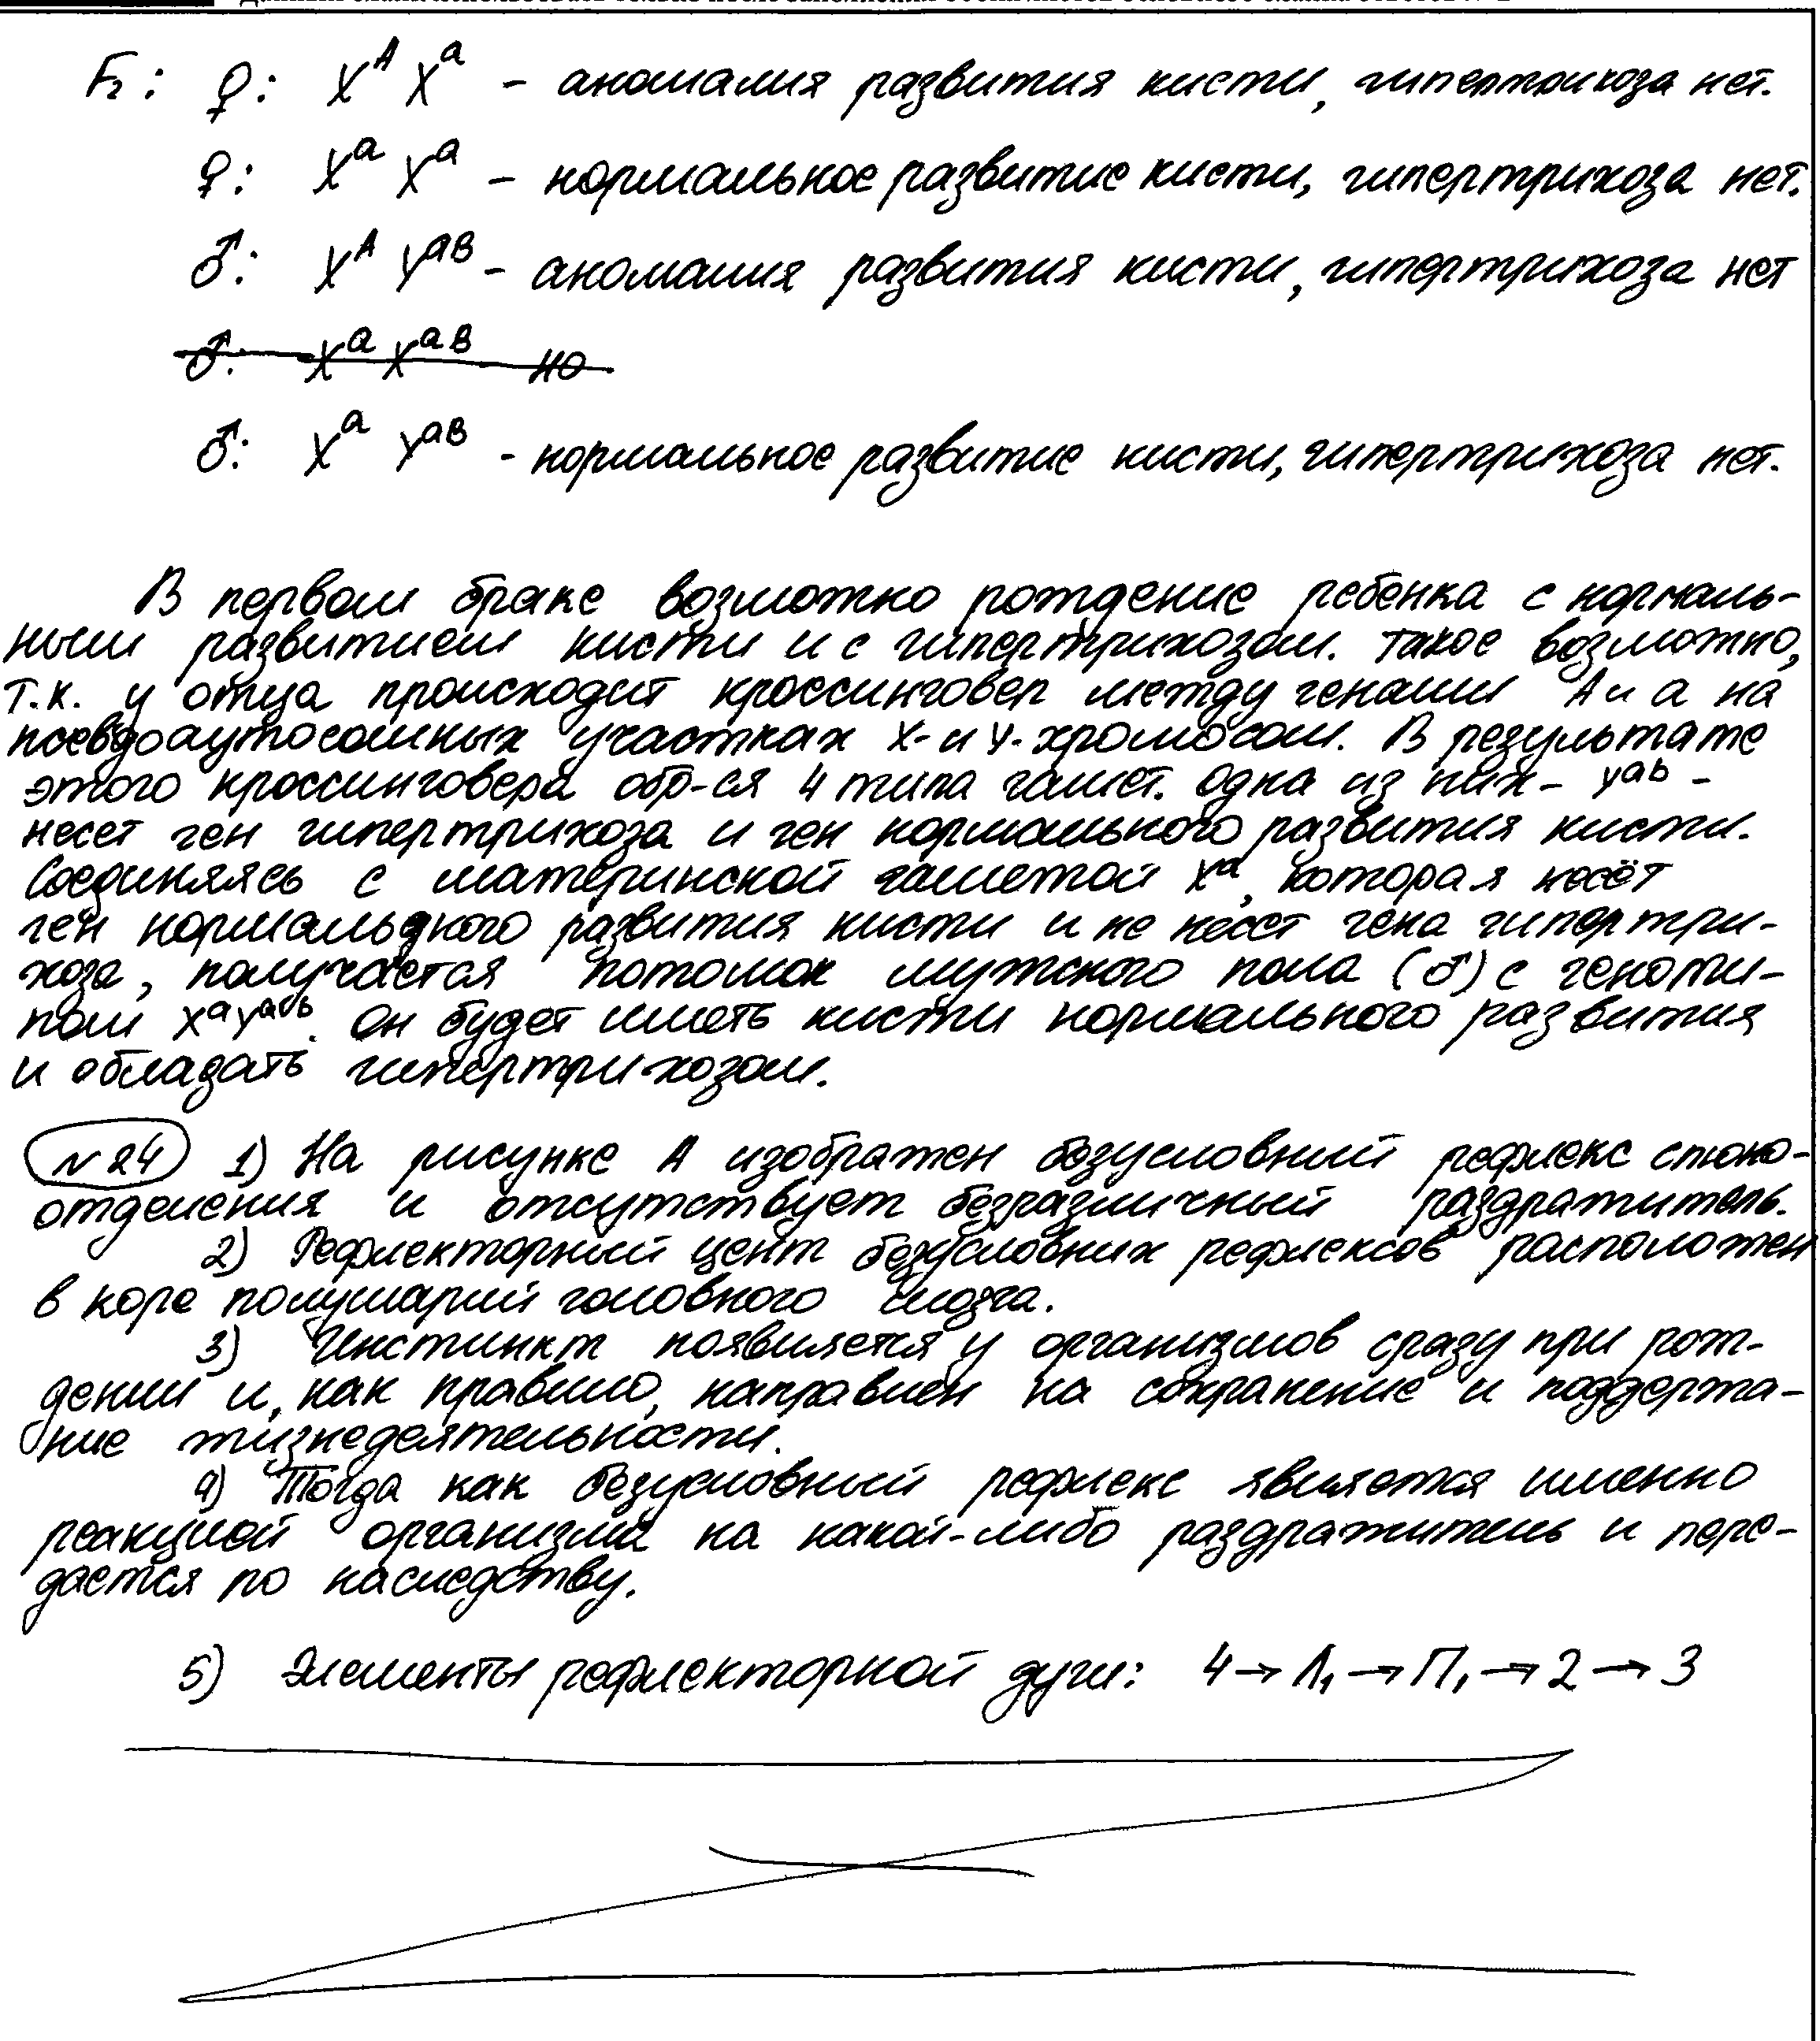 F₂: ♀: Xᴬ Xᵃ - аномалия развития кисти, гипертрихоза нет.
♀: Xᵃ Xᵃ - нормальное развитие кисти, гипертрихоза нет.
♂: Xᴬ Yᵃᴮ - аномалия развития кисти, гипертрихоза нет
♂: Xᵃ Xᵃᴮ но
♂: Xᵃ Yᵃᴮ - нормальное развитие кисти, гипертрихоза нет.
В первом браке возможно рождение ребенка с нормаль-
ным развитием кисти и с гипертрихозом. Такое возможно,
т.к. у отца происходит кроссинговер между генами А и а на
псевдоаутосомных участках X- и Y-хромосом. В результате
этого кроссинговера обр-ся 4 типа гамет. Одна из них - Yᵃᵇ -
несет ген гипертрихоза и ген нормального развития кисти.
Соединяясь с материнской гаметой Xᵃ, которая несёт
ген нормального развития кисти и не несет гена гипертри-
хоза, получается потомок мужского пола (♂) с геноти-
пом XᵃYᵃᵇ. Он будет иметь кисти нормального развития
и обладать гипертрихозом.
№24 1) На рисунке А изображен безусловный рефлекс слюно-
отделения и отсутствует безразличный раздражитель.
2) Рефлекторный цент безусловных рефлексов расположен
в коре полушарий головного мозга.
3) Инстинкт появляется у организмов сразу при рож-
дении и, как правило, направлен на сохранение и поддержа-
ние жизнедеятельности.
4) Тогда как безусловный рефлекс является именно
реакцией организма на какой-либо раздражитель и пере-
дается по наследству.
5) Элементы рефлекторной дуги: 4 → Л₁ → П₁ → 2 → 3